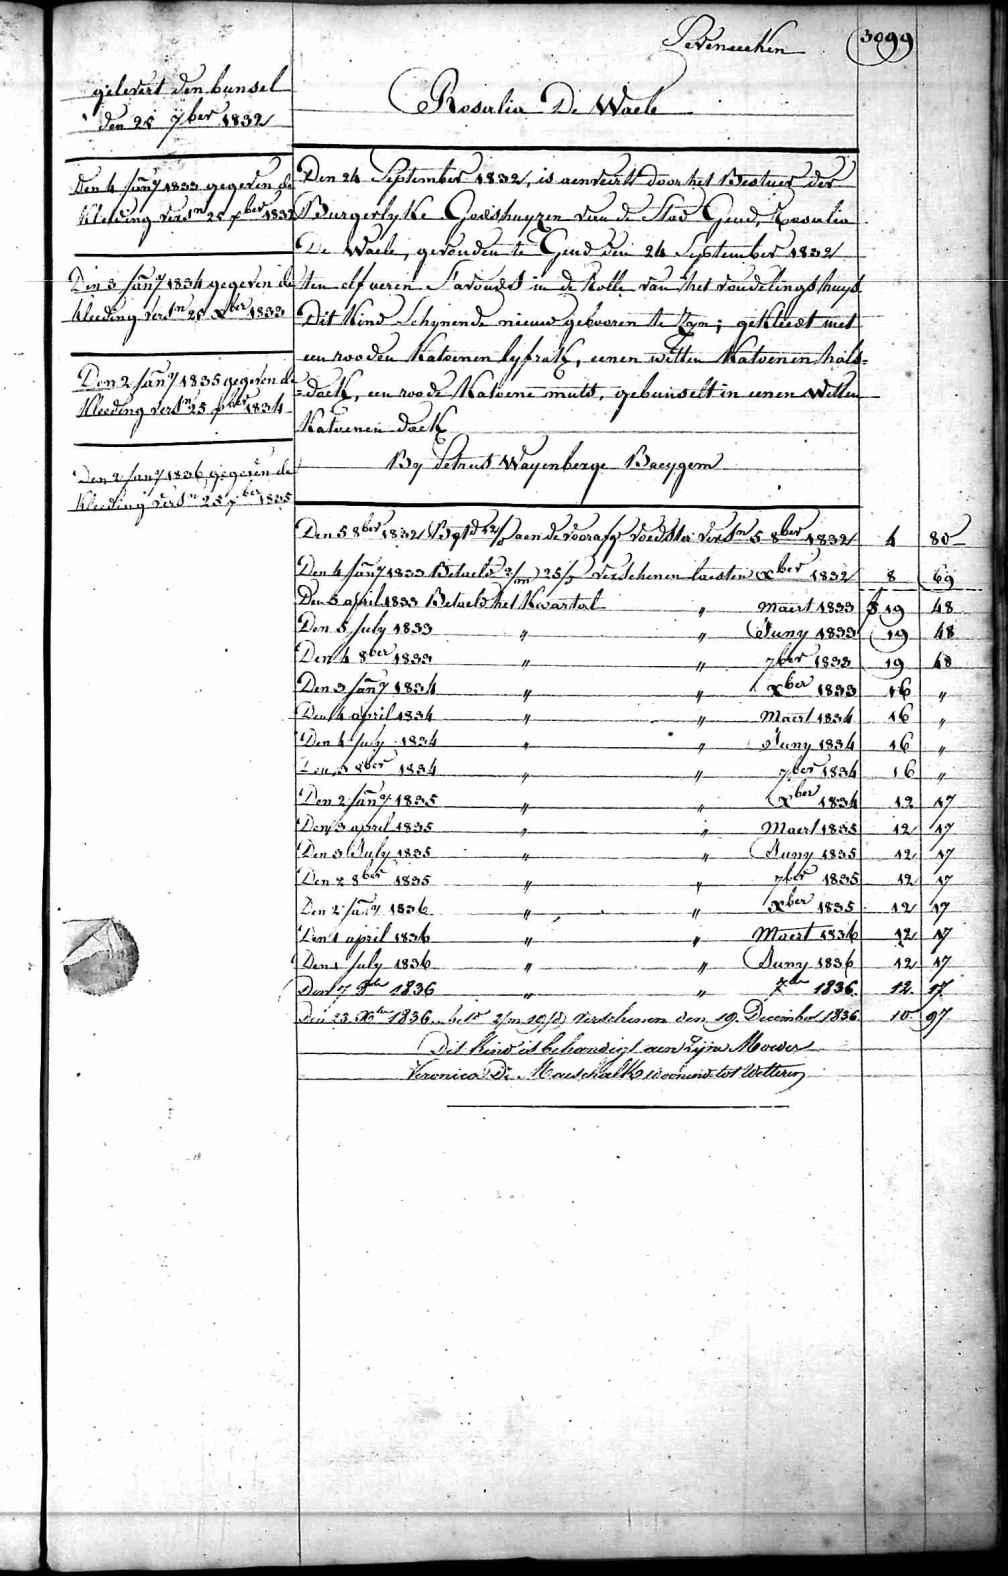 Seveneeken
3099
gelevert den bunsel
den 25 7ber 1832
Rosalia De Waele
Den 4 Jany 1833 gegeven de
Kleeding versn 25 xber 1832
Den 3 Jany 1834 gegeven de
Kleeding versn 25 xber 1833
Den 2 Jany 1835 gegeven de
Kleeding versn 25 xber 1834
Den 2 Jany 1836 gegeven de
Kleeding versn 25 xber 1835
Den 24 September 1832, is aenveirt door het Bestuer der
Burgerlyke Godshuyzen van de Stad Gend, Rosalia
De Waele, gevonden te Gend den 24 September 1832
ten elf ueren S'avonds in de Rolle van het vondelingshuys
Dit Kind Schynende nieuw gebooren te zyn; gekleed met
een rooden Katoenen lyfrak, eenen witten Katoenen hals=
=doek, een roode Katoene muts, gebunselt in eenen Witten
Katoenen doek
By Petrus Wayenberge Baeygem
Den 5 8ber 1832 aen de voorafg voedster versn 5 8ber 1832 4 80
Den 4 Jany 1833 Betaelt 2/m 25/d verschenen laesten xber 1832 8 69
Den 5 april 1833 Betaelt het Kwartael " Maert 1833 19 48
Den 5 July 1833 " " Juny 1833 19 48
Den 4 8ber 1833 " " 7ber 1833 19 48
Den 3 Jany 1834 " " xber 1833 16 "
Den 4 april 1834 " " Maert 1834 16 "
Den 4 July 1834 " " Juny 1834 16 "
Den 3 8ber 1834 " " 7ber 1834 16 "
Den 2 Jany 1835 " " xber 1834 12 17
Den 3 april 1835 " " Maert 1835 12 17
Den 3 July 1835 " " Juny 1835 12 17
Den 2 8ber 1835 " " 7ber 1835 12 17
Den 2 Jany 1836 " " xber 1835 12 17
Den 1 april 1836 " " Maert 1836 12 17
Den 1 July 1836 " " Juny 1836 12 17
Den 7 8ber 1836 " " 7ber 1836 12 17
Den 23 Xber 1836 2/m 19/d verschenen den 19 December 1836 10 97
Dit Kind is behandigt aen zijn Moeder
Veronica De Maeschalk woonende tot Wetteren